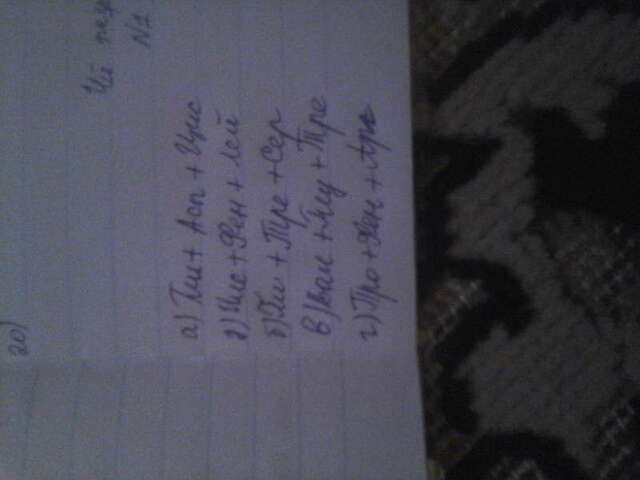 20)
N1
а) Гли + Асп + Цис
г) Цис + Фен + Лей
б) Гли + Тре + Сер
в) Вал + Глу + Тре
г) Про + Фен + Арг